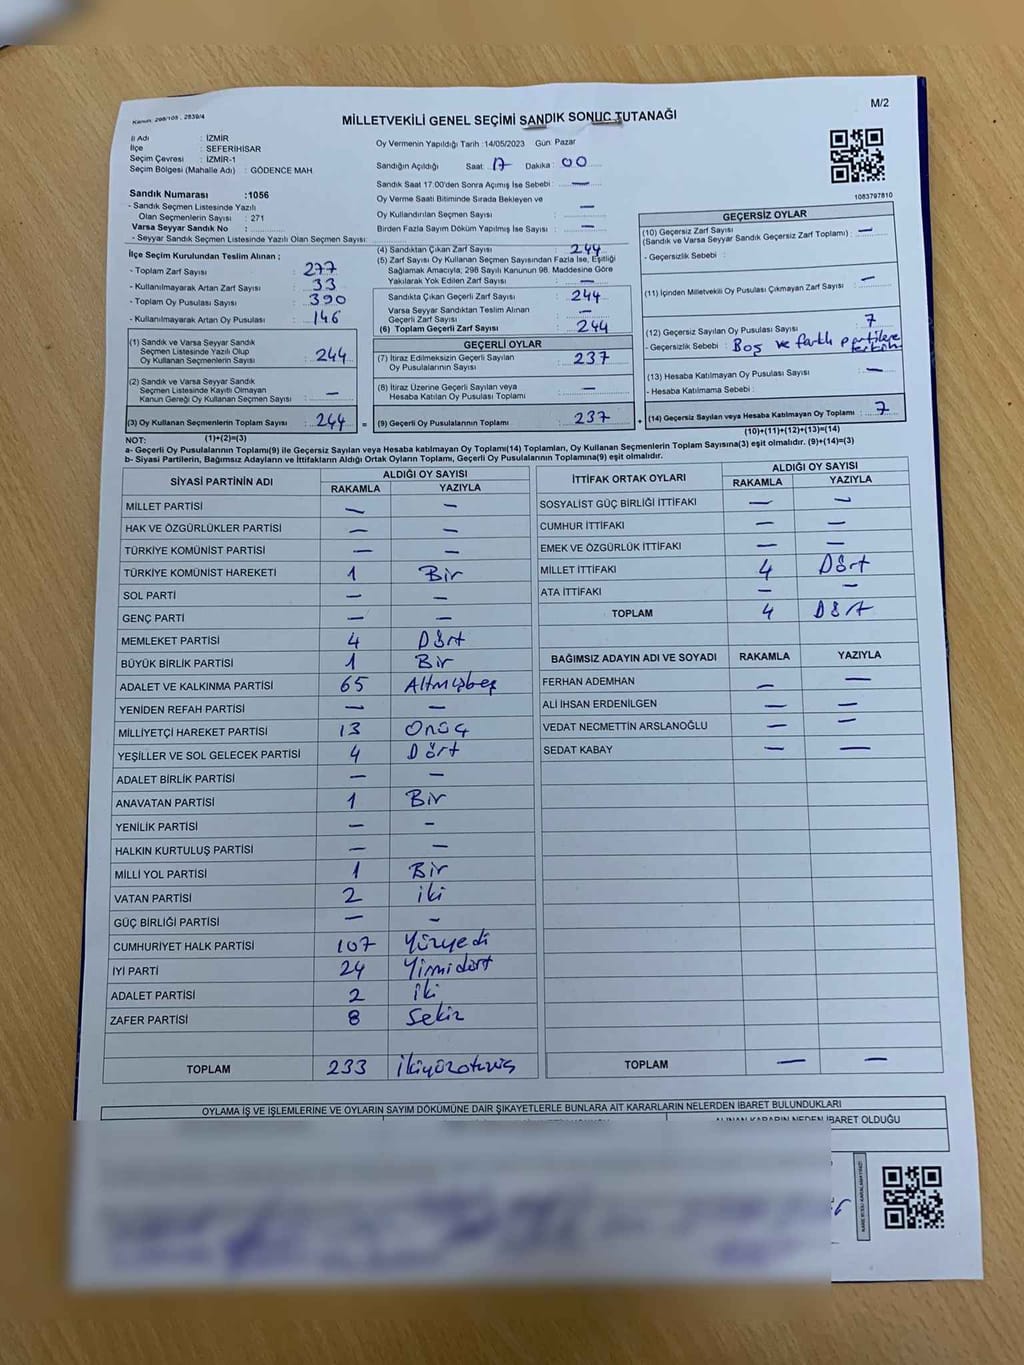 Kanun: 298/105 , 2839/4
M/2
MİLLETVEKİLİ GENEL SEÇİMİ SANDIK SONUÇ TUTANAĞI
İl Adı : İZMİR
İlçe : SEFERİHİSAR
Seçim Çevresi : İZMİR-1
Seçim Bölgesi (Mahalle Adı) : GÖDENCE MAH
Sandık Numarası :1056
- Sandık Seçmen Listesinde Yazılı
Olan Seçmenlerin Sayısı : 271
Varsa Seyyar Sandık No :
- Seyyar Sandık Seçmen Listesinde Yazılı Olan Seçmen Sayısı:
İlçe Seçim Kurulundan Teslim Alınan ;
- Toplam Zarf Sayısı : 277
- Kullanılmayarak Artan Zarf Sayısı : 33
- Toplam Oy Pusulası Sayısı : 390
- Kullanılmayarak Artan Oy Pusulası : 146
(1) Sandık ve Varsa Seyyar Sandık
Seçmen Listesinde Yazılı Olup
Oy Kullanan Seçmenlerin Sayısı : 244
(2) Sandık ve Varsa Seyyar Sandık
Seçmen Listesinde Kayıtlı Olmayan
Kanun Gereği Oy Kullanan Seçmen Sayısı : —
(3) Oy Kullanan Seçmenlerin Toplam Sayısı : 244
(1)+(2)=(3)
Oy Vermenin Yapıldığı Tarih :14/05/2023 Gün: Pazar
Sandığın Açıldığı Saat: 17 Dakika : 00
Sandık Saat 17.00'den Sonra Açılmış İse Sebebi : —
Oy Verme Saati Bitiminde Sırada Bekleyen ve
Oy Kullandırılan Seçmen Sayısı : —
Birden Fazla Sayım Döküm Yapılmış İse Sayısı : —
(4) Sandıktan Çıkan Zarf Sayısı : 244
(5) Zarf Sayısı Oy Kullanan Seçmen Sayısından Fazla İse, Eşitliği
Sağlamak Amacıyla; 298 Sayılı Kanunun 98. Maddesine Göre
Yakılarak Yok Edilen Zarf Sayısı : —
Sandıkta Çıkan Geçerli Zarf Sayısı : 244
Varsa Seyyar Sandıktan Teslim Alınan
Geçerli Zarf Sayısı : —
(6) Toplam Geçerli Zarf Sayısı : 244
GEÇERLİ OYLAR
(7) İtiraz Edilmeksizin Geçerli Sayılan
Oy Pusulalarının Sayısı : 237
(8) İtiraz Üzerine Geçerli Sayılan veya
Hesaba Katılan Oy Pusulası Toplamı : —
= (9) Geçerli Oy Pusulalarının Toplamı : 237
1083797810
GEÇERSİZ OYLAR
(10) Geçersiz Zarf Sayısı
(Sandık ve Varsa Seyyar Sandık Geçersiz Zarf Toplamı) : —
- Geçersizlik Sebebi :
(11) İçinden Milletvekili Oy Pusulası Çıkmayan Zarf Sayısı : —
(12) Geçersiz Sayılan Oy Pusulası Sayısı : 7
- Geçersizlik Sebebi : Boş ve farklı partilere
(13) Hesaba Katılmayan Oy Pusulası Sayısı : —
- Hesaba Katılmama Sebebi :
+ (14) Geçersiz Sayılan veya Hesaba Katılmayan Oy Toplamı : 7
(10)+(11)+(12)+(13)=(14)
NOT:
a- Geçerli Oy Pusulalarının Toplamı(9) ile Geçersiz Sayılan veya Hesaba katılmayan Oy Toplamı(14) Toplamları, Oy Kullanan Seçmenlerin Toplam Sayısına(3) eşit olmalıdır. (9)+(14)=(3)
b- Siyasi Partilerin, Bağımsız Adayların ve İttifakların Aldığı Ortak Oyların Toplamı, Geçerli Oy Pusulalarının Toplamına(9) eşit olmalıdır.
SİYASİ PARTİNİN ADI ALDIĞI OY SAYISI
RAKAMLA YAZIYLA
MİLLET PARTİSİ — —
HAK VE ÖZGÜRLÜKLER PARTİSİ — —
TÜRKİYE KOMÜNİST PARTİSİ — —
TÜRKİYE KOMÜNİST HAREKETİ 1 Bir
SOL PARTİ — —
GENÇ PARTİ — —
MEMLEKET PARTİSİ 4 Dört
BÜYÜK BİRLİK PARTİSİ 1 Bir
ADALET VE KALKINMA PARTİSİ 65 Altmışbeş
YENİDEN REFAH PARTİSİ — —
MİLLİYETÇİ HAREKET PARTİSİ 13 Onüç
YEŞİLLER VE SOL GELECEK PARTİSİ 4 Dört
ADALET BİRLİK PARTİSİ — —
ANAVATAN PARTİSİ 1 Bir
YENİLİK PARTİSİ — —
HALKIN KURTULUŞ PARTİSİ — —
MİLLİ YOL PARTİSİ 1 Bir
VATAN PARTİSİ 2 iki
GÜÇ BİRLİĞİ PARTİSİ — —
CUMHURİYET HALK PARTİSİ 107 Yüzyedi
İYİ PARTİ 24 Yirmidört
ADALET PARTİSİ 2 İki
ZAFER PARTİSİ 8 Sekiz
TOPLAM 233 ikiyüzotuzüç
İTTİFAK ORTAK OYLARI ALDIĞI OY SAYISI
RAKAMLA YAZIYLA
SOSYALİST GÜÇ BİRLİĞİ İTTİFAKI — —
CUMHUR İTTİFAKI — —
EMEK VE ÖZGÜRLÜK İTTİFAKI — —
MİLLET İTTİFAKI 4 Dört
ATA İTTİFAKI — —
TOPLAM 4 Dört
BAĞIMSIZ ADAYIN ADI VE SOYADI RAKAMLA YAZIYLA
FERHAN ADEMHAN — —
ALİ İHSAN ERDENİLGEN — —
VEDAT NECMETTİN ARSLANOĞLU — —
SEDAT KABAY — —
TOPLAM — —
OYLAMA İŞ VE İŞLEMLERİNE VE OYLARIN SAYIM DÖKÜMÜNE DAİR ŞİKAYETLERLE BUNLARA AİT KARARLARIN NELERDEN İBARET BULUNDUKLARI
ALINAN KARARIN NEDEN İBARET OLDUĞU